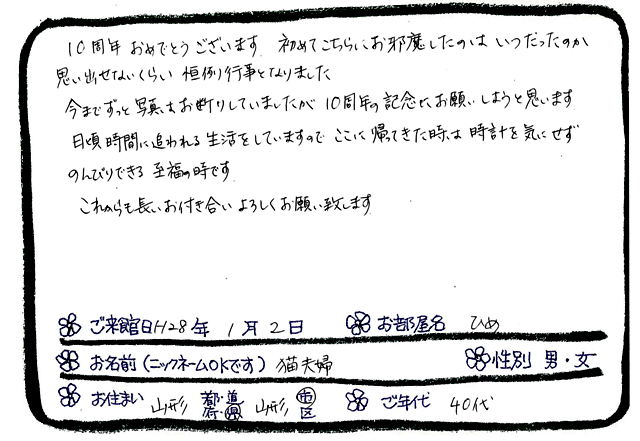 10周年 おめでとうございます 初めてこちらにお邪魔したのは いつだったのか
思い出せないくらい 恒例行事となりました
今までずっと 写真はお断りしていましたが 10周年の記念に お願いしようと思います
日頃 時間に追われる 生活をしていますので ここに 帰ってきた時は 時計を気にせず
のんびりできる 至福の時です
これからも長いお付き合い よろしくお願い致します
ご来館日 H28年 1月 2日 お部屋名 ひめ
お名前(ニックネームOKです) 猫夫婦 性別 男・女
お住まい 山形 都・道・府・県 山形 市区 ご年代 40代